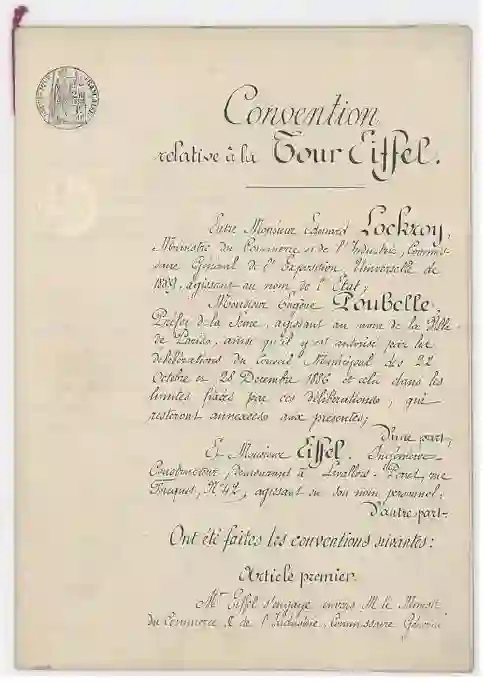 Convention
relative à la Tour Eiffel.
Entre Monsieur Edouard Lockroy,
Ministre du Commerce et de l'Industrie, Commis-
saire Général de l'Exposition Universelle de
1889, agissant au nom de l'Etat;
Monsieur Eugène Poubelle,
Préfet de la Seine, agissant au nom de la Ville
de Paris, ainsi qu'il y est autorisé par les
délibérations du Conseil Municipal des 22
Octobre et 28 Décembre 1886 et cela dans les
limites fixées par ces délibérations, qui
resteront annexées aux présentes;
D'une part,
Et Monsieur Eiffel. Ingénieur-
Constructeur, demeurant à Levallois-Perret, rue
Fouquet, N°42, agissant en son nom personnel,
D'autre part.
Ont été faites les conventions suivantes:
Article premier.
Mr Eiffel s'engage envers M. le Ministre
du Commerce & de l'Industrie, Commissaire Général